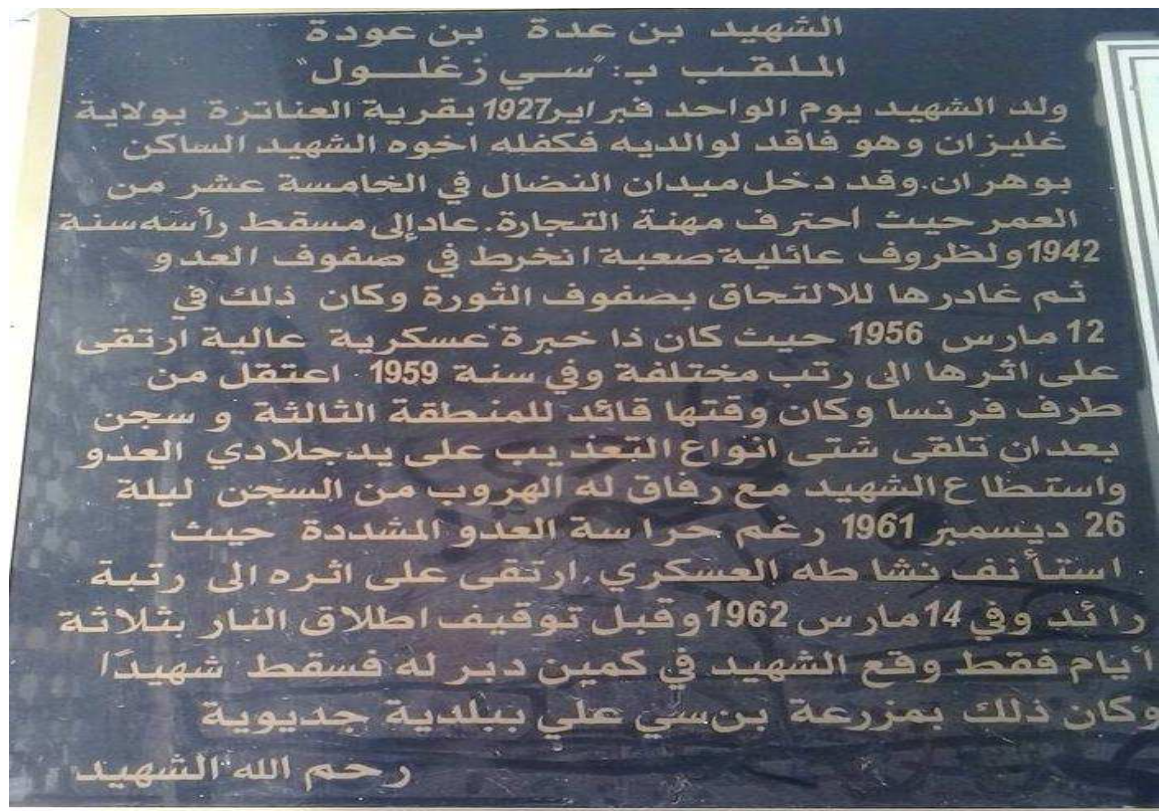 الشهيد بن عدة بن عودة
الملقب ب: "سي زغلول"
ولد الشهيد يوم الواحد فبراير 1927 بقرية العناترة بولاية
غليزان وهو فاقد لوالديه فكفله اخوه الشهيد الساكن
بوهران.وقد دخل ميدان النضال في الخامسة عشر من
العمر حيث احترف مهنة التجارة.عاد إلى مسقط رأسه سنة
1942 ولظروف عائلية صعبة انخرط في صفوف العدو
ثم غادرها للالتحاق بصفوف الثورة وكان ذلك في
12 مارس 1956 حيث كان ذا خبرة عسكرية عالية ارتقى
على اثرها الى رتب مختلفة وفي سنة 1959 اعتقل من
طرف فرنسا وكان وقتها قائد للمنطقة الثالثة و سجن
بعدان تلقى شتى انواع التعذيب على يد جلادي العدو
واستطاع الشهيد مع رفاق له الهروب من السجن ليلة
26 ديسمبر 1961 رغم حراسة العدو المشددة حيث
استأنف نشاطه العسكري,ارتقى على اثره الى رتبة
رائد وفي 14 مارس 1962 وقبل توقيف اطلاق النار بثلاثة
أيام فقط وقع الشهيد في كمين دبر له فسقط شهيدًا
وكان ذلك بمزرعة بن سي علي ببلدية جديوية
رحم الله الشهيد